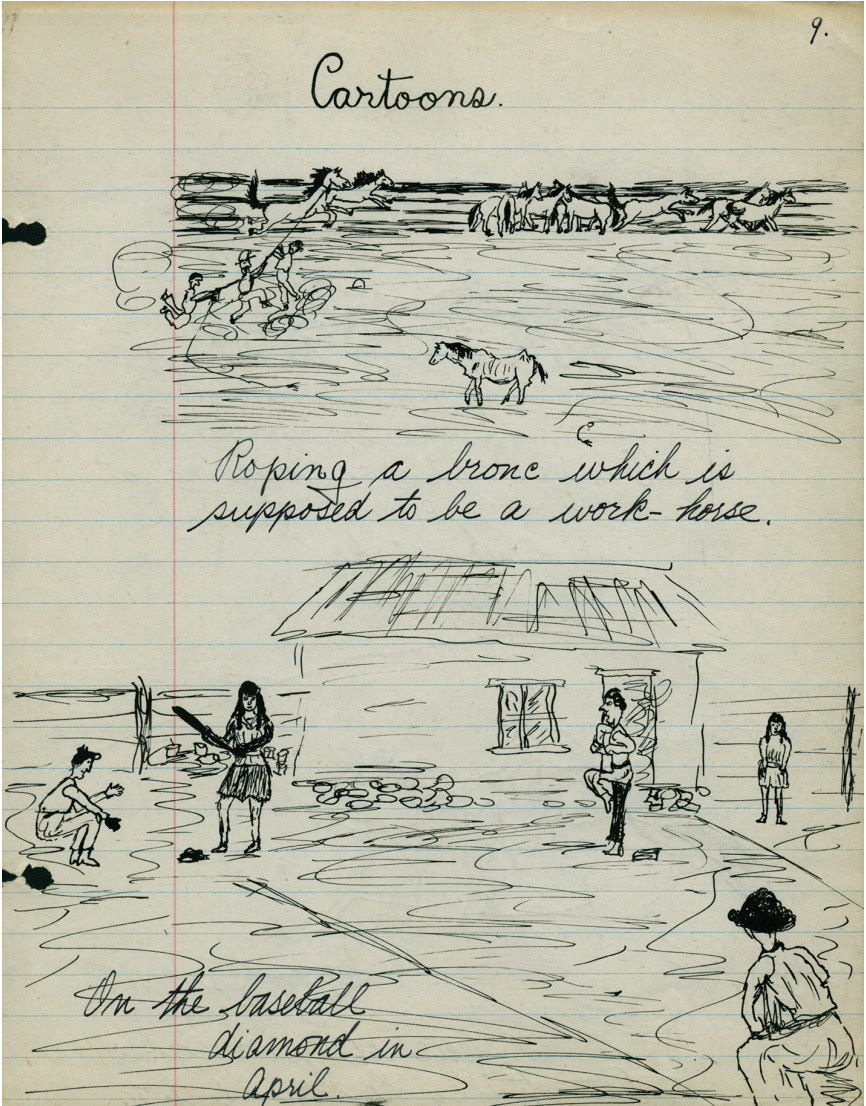 9.
Cartoons.
Roping a bronc which is
supposed to be a work-horse.
On the baseball
diamond in
April.